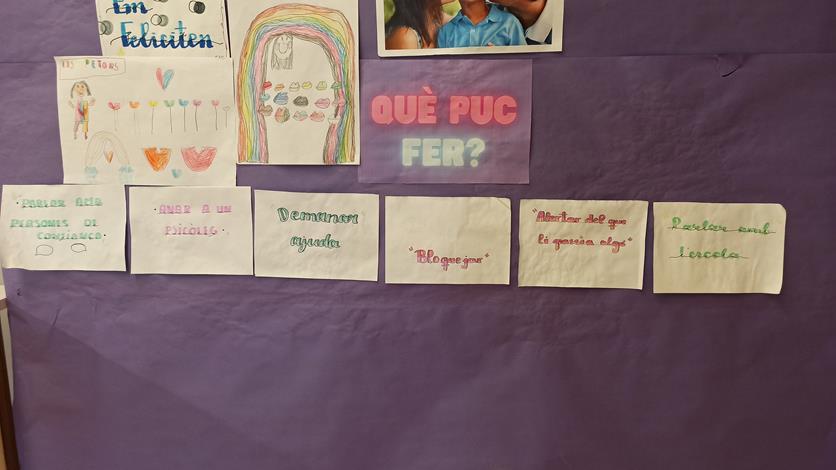 Em
Feliciten
ELS PETONS
QUÈ PUC
FER?
·PARLAR AMB
PERSONES DE
CONFIANÇA·
·ANAR A UN
PSICÒLEG·
Demanar
ajuda
"Bloquejar"
"Alertar del que
li passa algo"
Parlar amb
l'escola